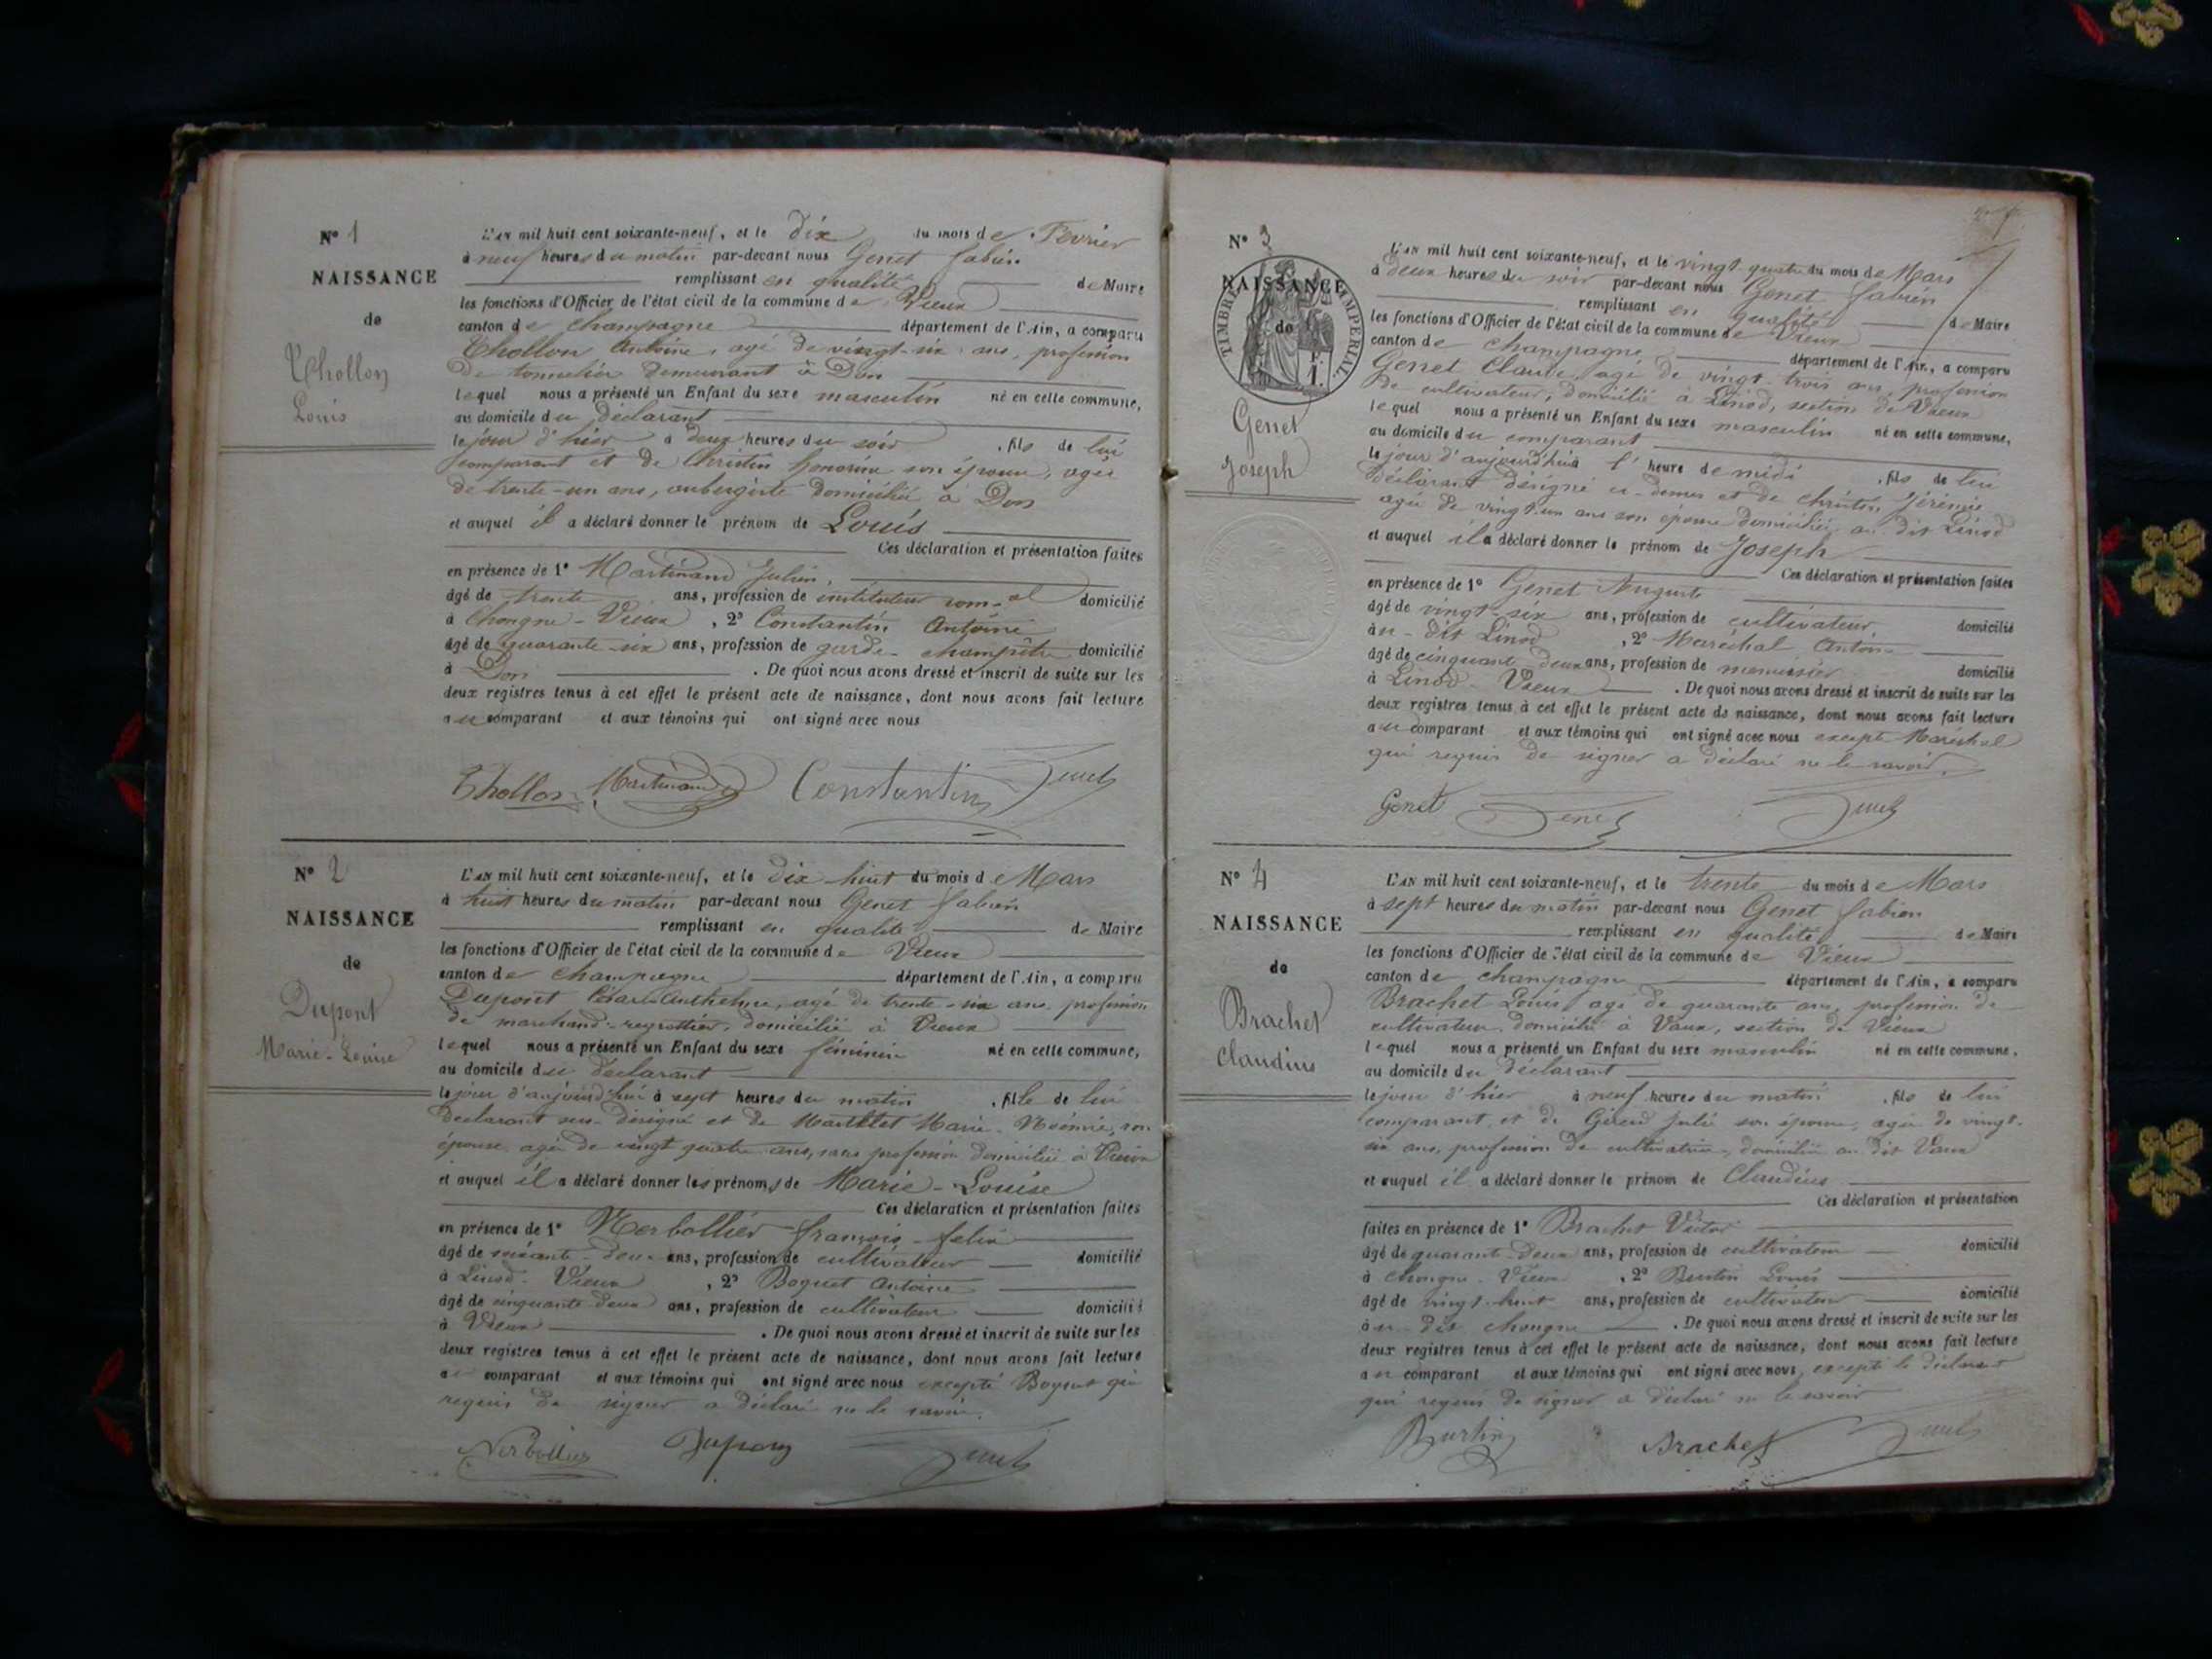 N° 1
NAISSANCE
de
Thollon
Louis
L'AN mil huit cent soixante-neuf, et le dix du mois de Février
à neuf heures du matin par-devant nous Genet fabien
remplissant en qualité de Maire
les fonctions d'Officier de l'état civil de la commune de Vieux
canton de Champagne département de l'Ain, a comparu
Thollon Antoine, agé de vingt-six ans, profession
de tonnelier demeurant à Don
lequel nous a présenté un Enfant du sexe masculin né en cette commune,
au domicile du déclarant
le jour d'hier à deux heures du soir , fils de lui
comparant et de Christin honorine son épouse, agée
de trente-un ans, aubergiste domiciliée à Don
et auquel il a déclaré donner le prénom de Louis
Ces déclaration et présentation faites
en présence de 1° Martinand Julien,
âgé de trente ans, profession de instituteur com-al domicilié
à Chongne-Vieux , 2° Constantin Antoine
âgé de quarante-six ans, profession de garde-champêtre domicilié
à Don . De quoi nous avons dressé et inscrit de suite sur les
deux registres tenus à cet effet le présent acte de naissance, dont nous avons fait lecture
au comparant et aux témoins qui ont signé avec nous
Thollon Martinand Constantin Genet
N° 2
NAISSANCE
de
Dupont
Marie-Louise
L'AN mil huit cent soixante-neuf, et le dix huit du mois de Mars
à huit heures du matin par-devant nous Genet fabien
remplissant en qualité de Maire
les fonctions d'Officier de l'état civil de la commune de Vieux
canton de Champagne département de l'Ain, a comparu
Dupont Anthelme, agé de trente-six ans, profession
de marchand-regrattier, domicilié à Vieux
lequel nous a présenté un Enfant du sexe féminin né en cette commune,
au domicile du déclarant
le jour d'aujourd'hui à sept heures du matin , fille de lui
déclarant sus-désigné et de Marie-Noémie, son
épouse agée de vingt quatre ans, sans profession domiciliée à Vieux
et auquel il a déclaré donner les prénoms de Marie-Louise
Ces déclaration et présentation faites
en présence de 1° Nerbollier françois-felix
âgé de soixante-deux ans, profession de cultivateur domicilié
à Linod-Vieux , 2° Boquet Antoine
âgé de cinquante-deux ans, profession de cultivateur domicilié
à Vieux . De quoi nous avons dressé et inscrit de suite sur les
deux registres tenus à cet effet le présent acte de naissance, dont nous avons fait lecture
au comparant et aux témoins qui ont signé avec nous excepté Boquet qui
requis de signer a déclaré ne le savoir.
Nerbollier Dupont Genet
N° 3
NAISSANCE
de
TIMBRE IMPERIAL
1 F.
Genet
Joseph
L'AN mil huit cent soixante-neuf, et le vingt-quatre du mois de Mars
à deux heures du soir par-devant nous Genet fabien
remplissant en qualité de Maire
les fonctions d'Officier de l'état civil de la commune de Vieux
canton de Champagne département de l'Ain, a comparu
Genet Claude, agé de vingt-trois ans, profession
de cultivateur, domicilié à Linod, section de Vieux
lequel nous a présenté un Enfant du sexe masculin né en cette commune,
au domicile du comparant
le jour d'aujourd'hui à l'heure de midi , fils de lui
déclarant désigné ci-dessus et de Christin
agée de vingt-un ans son épouse domiciliée au dit Linod
et auquel il a déclaré donner le prénom de Joseph
Ces déclaration et présentation faites
en présence de 1° Genet Auguste
âgé de vingt-six ans, profession de cultivateur domicilié
à u-dit Linod , 2° Maréchal Antoine
âgé de cinquante deux ans, profession de menuisier domicilié
à Linod-Vieux . De quoi nous avons dressé et inscrit de suite sur les
deux registres tenus à cet effet le présent acte de naissance, dont nous avons fait lecture
au comparant et aux témoins qui ont signé avec nous excepté Maréchal
qui requis de signer a déclaré ne le savoir.
Genet Genet Genet
N° 4
NAISSANCE
de
Brachet
Claudius
L'AN mil huit cent soixante-neuf, et le trente du mois de Mars
à sept heures du matin par-devant nous Genet fabien
remplissant en qualité de Maire
les fonctions d'Officier de l'état civil de la commune de Vieux
canton de Champagne département de l'Ain, a comparu
Brachet Louis, agé de quarante ans, profession de
cultivateur, domicilié à Vaux, section de Vieux
lequel nous a présenté un Enfant du sexe masculin né en cette commune,
au domicile du déclarant
le jour d'hier à neuf heures du matin , fils de lui
comparant, et de Julie son épouse, agée de vingt-
six ans, profession de cultivatrice, domiciliée au dit Vaux
et auquel il a déclaré donner le prénom de Claudius
Ces déclaration et présentation
faites en présence de 1° Brachet Victor
âgé de quarante-deux ans, profession de cultivateur domicilié
à Chongne-Vieux , 2° Burtin Louis
âgé de vingt-huit ans, profession de cultivateur domicilié
à u-dit Chongne . De quoi nous avons dressé et inscrit de suite sur les
deux registres tenus à cet effet le présent acte de naissance, dont nous avons fait lecture
au comparant et aux témoins qui ont signé avec nous, excepté le déclarant
qui requis de signer a déclaré ne le savoir
Burtin Brachet Genet